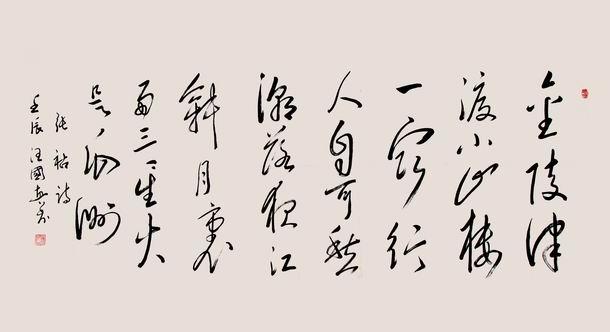 金陵津
渡小山楼
一宿行
人自可愁
潮落夜江
斜月裏
两三星火
是瓜洲
张祜诗
壬辰汪國真书